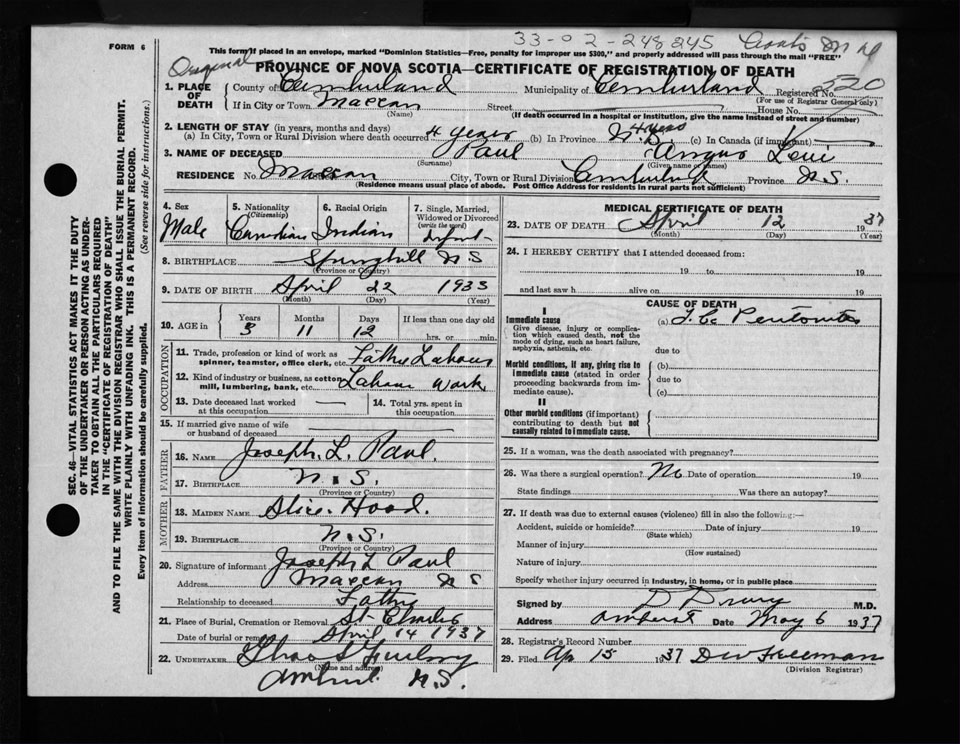 33-02-248245
FORM 6
This form if placed in an envelope, marked "Dominion Statistics—Free, penalty for improper use $300," and properly addressed will pass through the mail "FREE"
Original
PROVINCE OF NOVA SCOTIA—CERTIFICATE OF REGISTRATION OF DEATH
1. PLACE OF DEATH
County of Cumberland Municipality of Cumberland Registered No. 520
(For use of Registrar General only)
If in City or Town Maccan Street House No.
(Name) (If death occurred in a hospital or institution, give the name instead of street and number)
2. LENGTH OF STAY (in years, months and days)
(a) In City, Town or Rural Division where death occurred 4 years (b) In Province 4 years (c) In Canada (if immigrant)
3. NAME OF DECEASED Paul Angus Levi
(Surname) (Given name or names)
RESIDENCE No. Maccan City, Town or Rural Division Cumberland Province N.S.
(Residence means usual place of abode. Post Office Address for residents in rural parts not sufficient)
4. Sex Male
5. Nationality (Citizenship) Canadian
6. Racial Origin Indian
7. Single, Married, Widowed or Divorced (write the word)
8. BIRTHPLACE Springhill N S
(Province or Country)
9. DATE OF BIRTH April 22 1933
(Month) (Day) (Year)
10. AGE in Years Months Days If less than one day old
3 11 12 hrs. or min.
OCCUPATION
11. Trade, profession or kind of work as spinner, teamster, office clerk, etc.
12. Kind of industry or business, as cotton mill, lumbering, bank, etc. Labour Work
13. Date deceased last worked at this occupation
14. Total yrs. spent in this occupation
15. If married give name of wife or husband of deceased
FATHER
16. NAME Joseph. L. Paul.
17. BIRTHPLACE N.S.
(Province or Country)
MOTHER
18. MAIDEN NAME Alice. Hood.
19. BIRTHPLACE N.S.
(Province or Country)
20. Signature of informant Joseph L Paul
Address Maccan N S
Relationship to deceased Father
21. Place of Burial, Cremation or Removal St Charles
Date of burial or removal April 14 1937
22. UNDERTAKER
(Name and address)
Amherst N.S.
MEDICAL CERTIFICATE OF DEATH
23. DATE OF DEATH April 12 1937
(Month) (Day) (Year)
24. I HEREBY CERTIFY that I attended deceased from:
19 to 19
and last saw h alive on 19
CAUSE OF DEATH
I
Immediate cause
Give disease, injury or complication which caused death, not the mode of dying, such as heart failure, asphyxia, asthenia, etc.
(a)
due to
Morbid conditions, if any, giving rise to immediate cause (stated in order proceeding backwards from immediate cause).
(b)
due to
(c)
II
Other morbid conditions (if important) contributing to death but not causally related to immediate cause.
25. If a woman, was the death associated with pregnancy?
26. Was there a surgical operation? No Date of operation 19
State findings Was there an autopsy?
27. If death was due to external causes (violence) fill in also the following:—
Accident, suicide or homicide? Date of injury 19
(State which)
Manner of injury
(How sustained)
Nature of injury
Specify whether injury occurred in industry, in home, or in public place
Signed by D Drury M.D.
Address Amherst Date May 6 1937
28. Registrar's Record Number
29. Filed Ap 15 1937 D W Freeman
(Division Registrar)
SEC. 46—VITAL STATISTICS ACT MAKES IT THE DUTY OF THE UNDERTAKER OR PERSON ACTING AS UNDERTAKER TO OBTAIN ALL THE PARTICULARS REQUIRED IN THE "CERTIFICATE OF REGISTRATION OF DEATH" AND TO FILE THE SAME WITH THE DIVISION REGISTRAR WHO SHALL ISSUE THE BURIAL PERMIT.
WRITE PLAINLY WITH UNFADING INK. THIS IS A PERMANENT RECORD.
Every item of information should be carefully supplied. (See reverse side for instructions.)